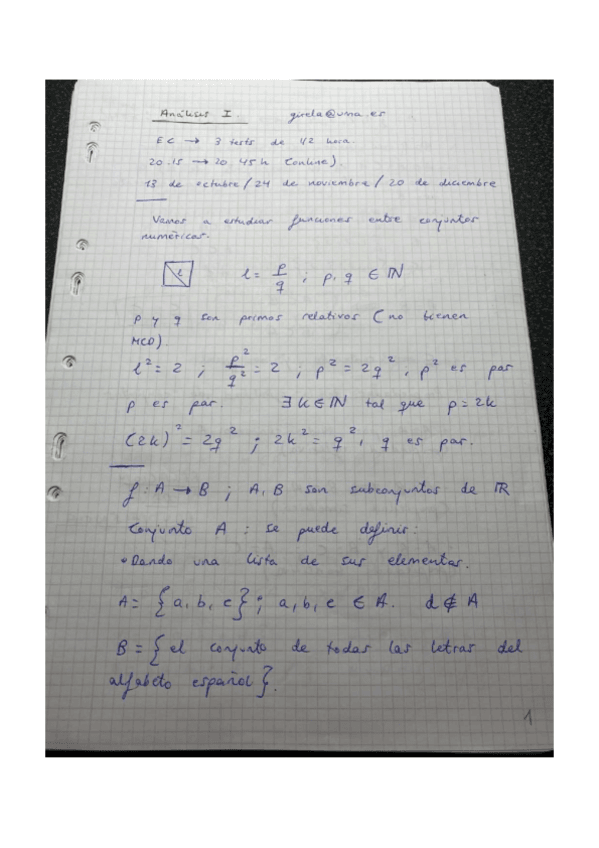 Análisis I. girela@uma.es
EC → 3 tests de 1/2 hora.
20.15 → 20.45 h (online).
13 de octubre / 24 de noviembre / 20 de diciembre
Vamos a estudiar funciones entre conjuntos
numéricos.
l l = p/q ; p, q ∈ ℕ
p y q son primos relativos (no tienen
MCD).
l² = 2 ; p²/q² = 2 ; p² = 2q², p² es par
p es par. ∃ k ∈ ℕ tal que p = 2k
(2k)² = 2q² ; 2k² = q², q es par.
f: A → B ; A, B son subconjuntos de ℝ
Conjunto A : se puede definir:
• Dando una lista de sus elementos.
A = {a, b, c} ; a, b, c ∈ A. d ∉ A
B = {el conjunto de todas las letras del
alfabeto español}.
1